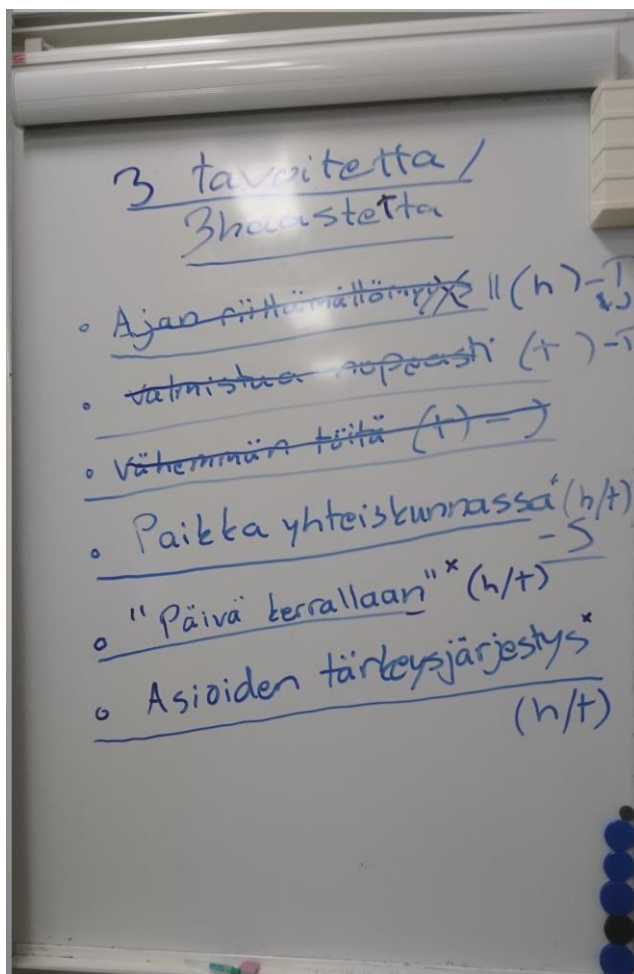 3 tavoitetta/
3haastetta
• Ajan riittämättömyys || (h) -T
• valmistua nopeasti (t) -T
• vähemmän töitä (t) - J
• Paikka yhteiskunnassa* (h/t)
- S
• "Päivä kerrallaan"* (h/t)
• Asioiden tärkeysjärjestys*
(h/t)